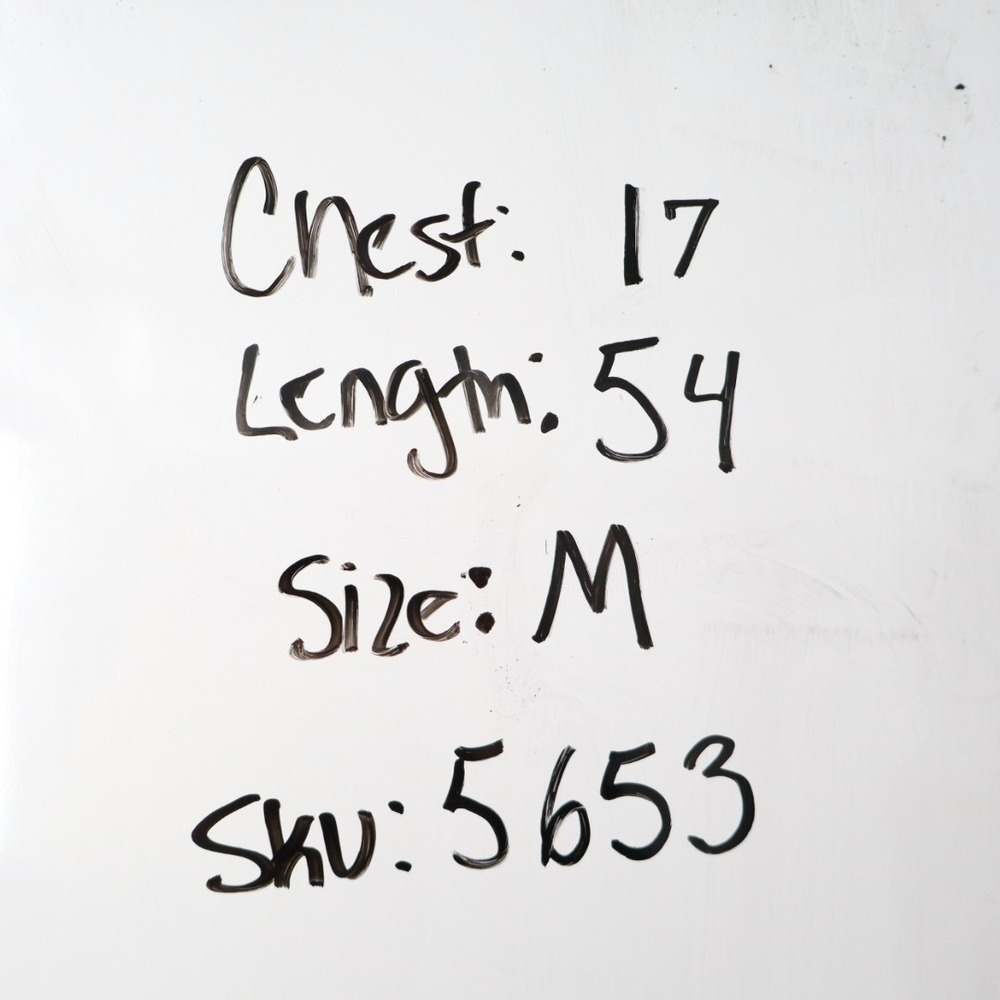 Chest: 17
Length: 54
Size: M
Sku: 5653